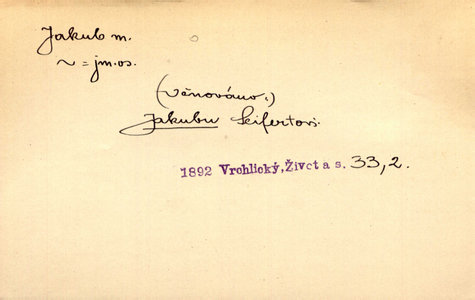 Jakub m.
~ = jm. os.
(věnováno:)
Jakubu Seifertovi.
1892 Vrchlický, Život a s. 33, 2.